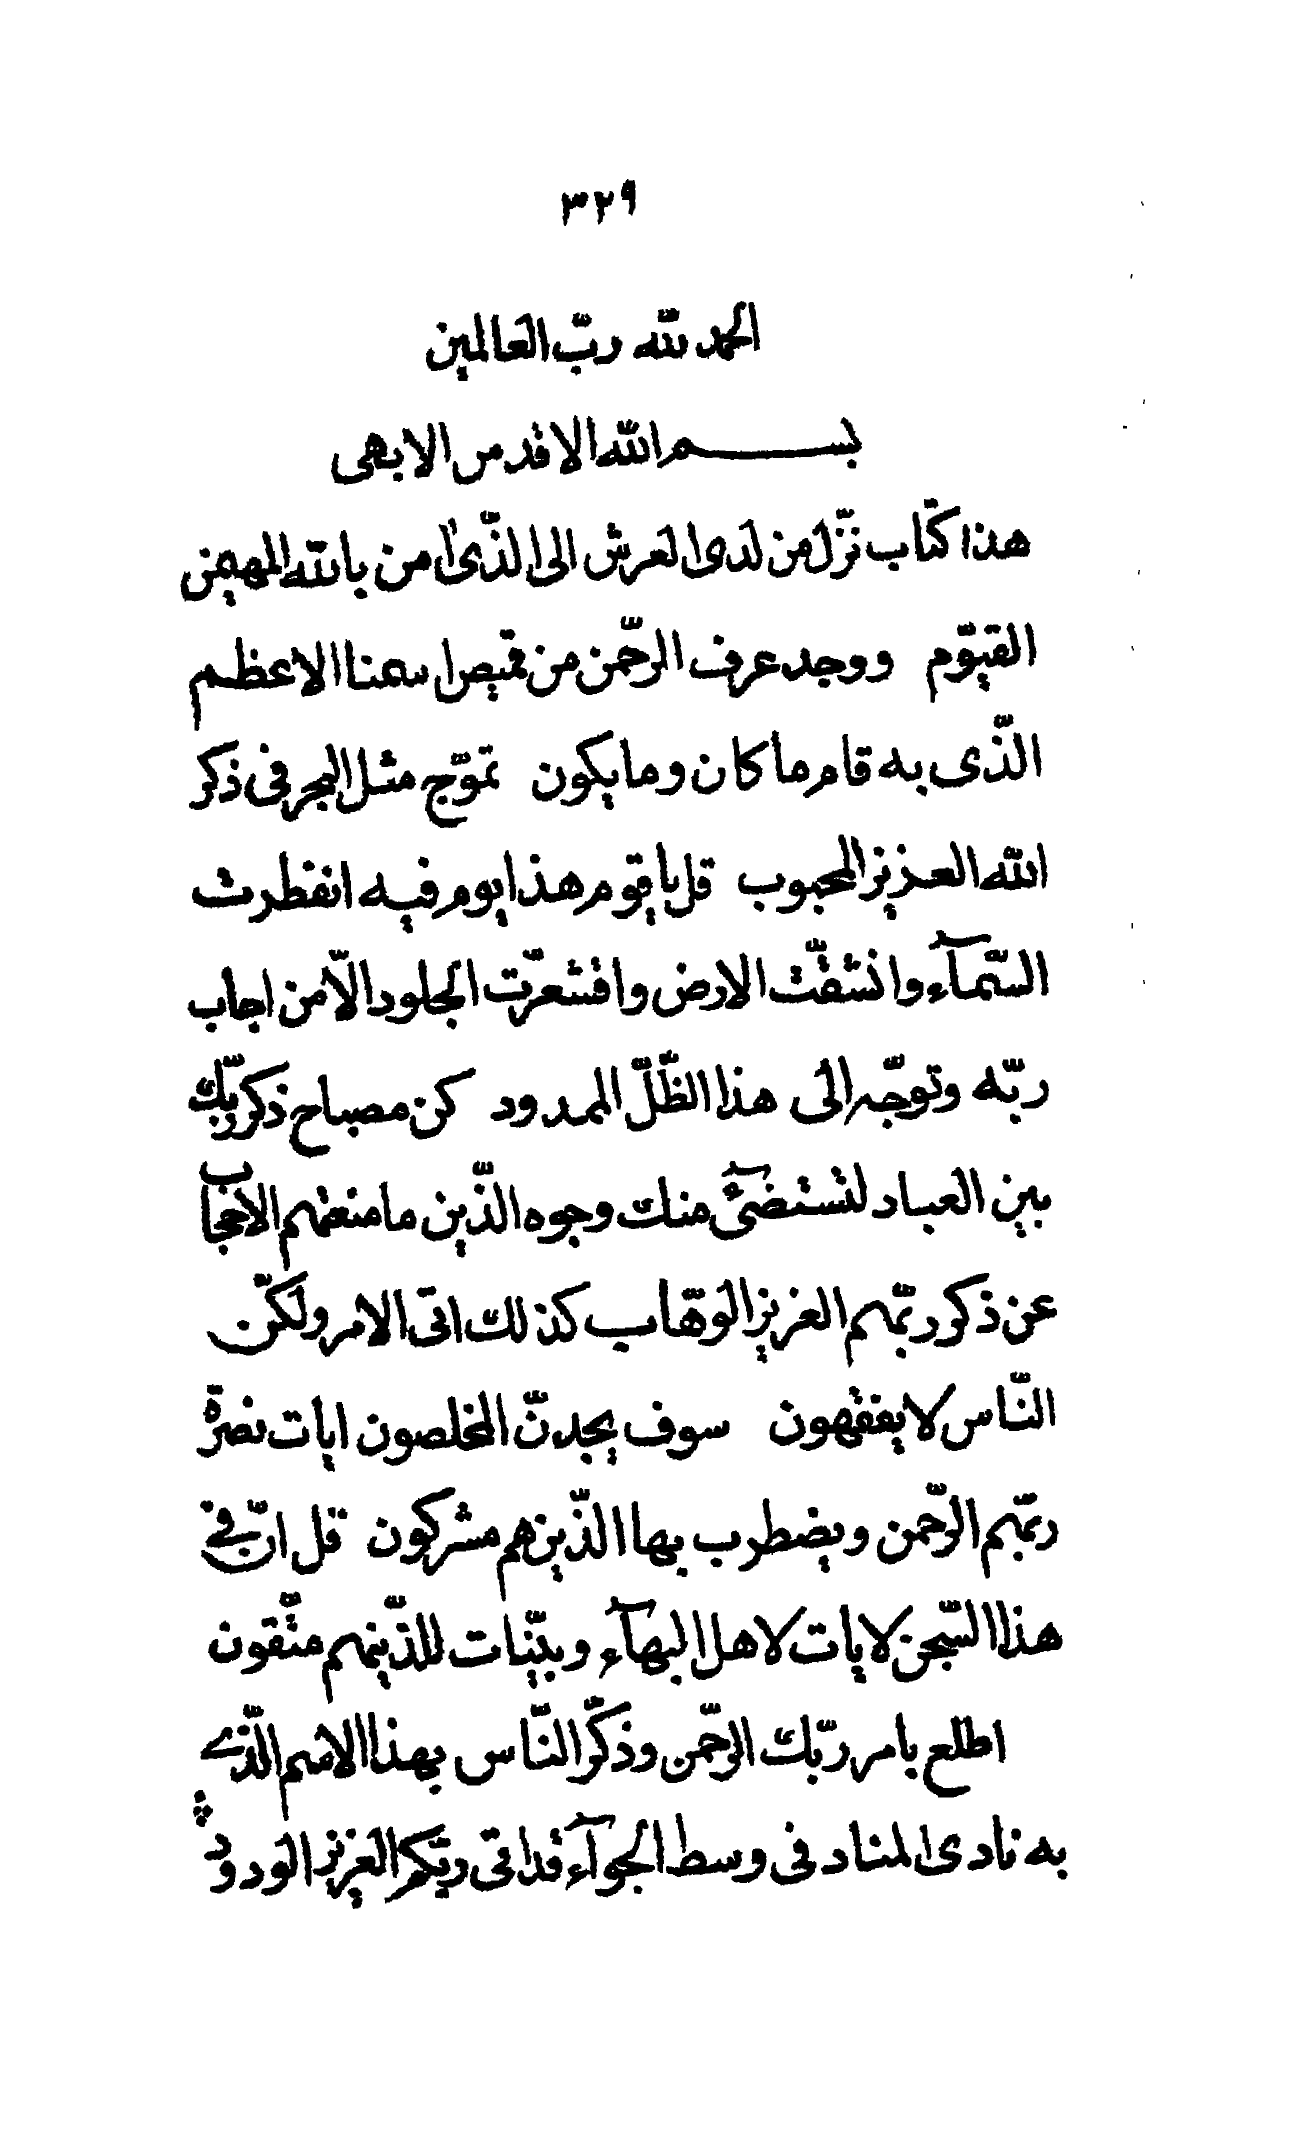 ٣٢٩
الحمد لله ربّ العالمين
بسم الله الاقدس الابهى
هذا كتاب نزّل من لدى العرش الى الّذى امن بالله المهيمن
القيّوم ووجد عرف الرّحمن من قميص اسمنا الاعظم
الّذى به قام ما كان وما يكون تموّج مثل البحر فى ذكر
الله العزيز المحبوب قل يا قوم هذا يوم فيه انفطرت
السّمآء وانشقّت الارض واقشعرّت الجلود الّا من اجاب
ربّه وتوجّه الى هذا الظّلّ الممدود كن مصباح ذكر ربّك
بين العباد لتستضىٓء منك وجوه الّذين ما منعتهم الاحجاب
عن ذكر ربّهم العزيز الوهّاب كذلك اتى الامر ولكنّ
النّاس لا يفقهون سوف يجدنّ المخلصون ايات نصرة
ربّهم الرّحمن ويضطرب بها الّذينهم مشركون قل انّ فى
هذا السّجن لايات لاهل البهآء وبيّنات للّذينهم متّقون
اطلع بامر ربّك الرّحمن وذكّر النّاس بهذا الاسم الّذى
به نادى المناد فى وسط الجوآء قد اتى ربّكم العزيز الودود